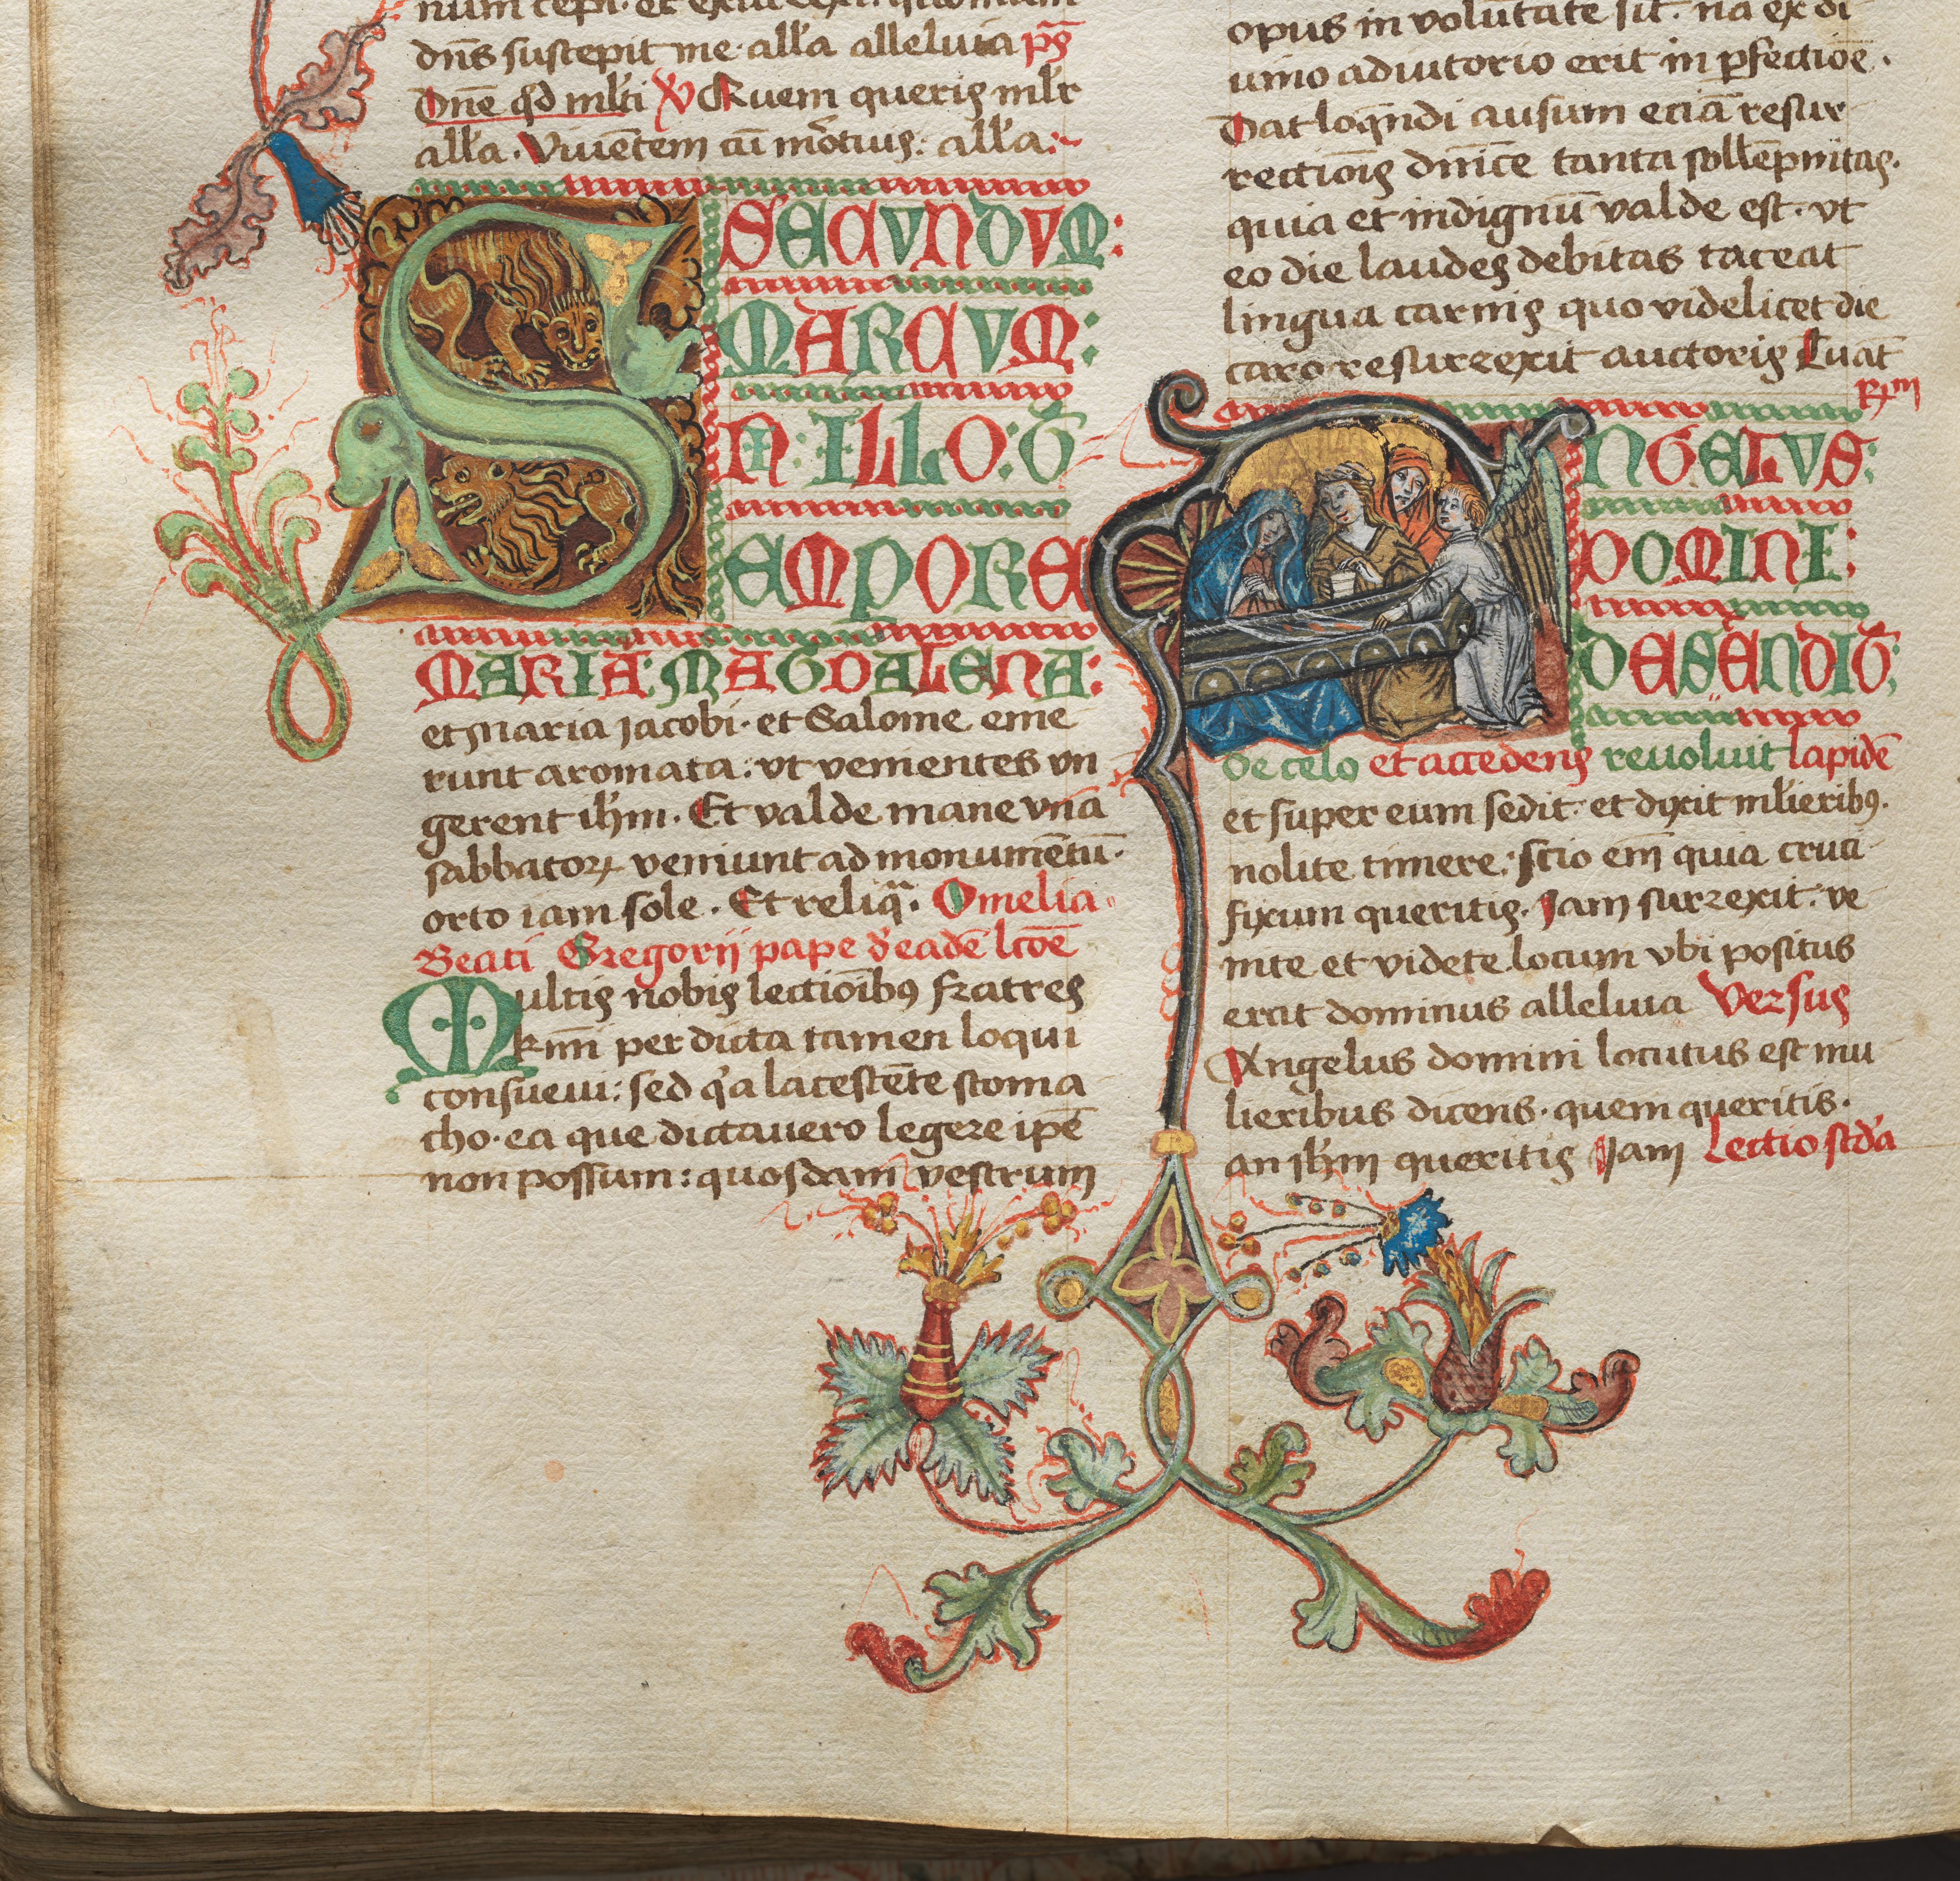 num cepi. et exur
dn̄s suscepit me. all'a alleluia p̄s
Dn̄e q̄d ml'ti V̄ Quem queris ml'r
all'a. Viuētem cū mōrtuis: all'a:
SECVNDVM:
MARCVM:
IN: ILLO: T̄
EMPORE
MARIA: MAGDALENA:
et Maria Jacobi. et Salome eme
runt aromata: vt venientes vn
gerent ih̄m. Et valde mane vna
sabbatoꝝ veniunt ad monumētū.
orto iam sole. Et reliqª. Omelia
Beati Gregorij pape d' eadē lc̄oē
Multis nobis lectiōibꝯ fratres
km̄i per dicta tamen loqui
consueui: sed q'a lacescēte stoma
cho. ea que dictauero legere ip̄e
non possum: quosdam vestrum
opus in volūtate sit. nā ex di
uino adiutorio erit in ꝑfectiōe.
Dat loquēdi ausum eciā resur
rectiōis dn̄ice tanta sollēpnitas.
quia et indignū valde est. vt
eo die laudes debitas taceat
lingua carnis quo videlicet die
caro resurrexit auctoris Euāt
R̄m
ANGELVS:
DOMINI:
DESENDIT:
de celo et accedens reuoluit lapidē
et super eum sedit. et dixit ml'ieribꝯ.
nolite timere: scio em̄ quia cruci
fixum queritis. Jam surrexit: ve
nite et videte locum vbi positus
erat dominus alleluia Versus
Angelus domini locutus est mu
lieribus dicens. quem queritis.
an ih̄m queritis Jam Lectio scd'a